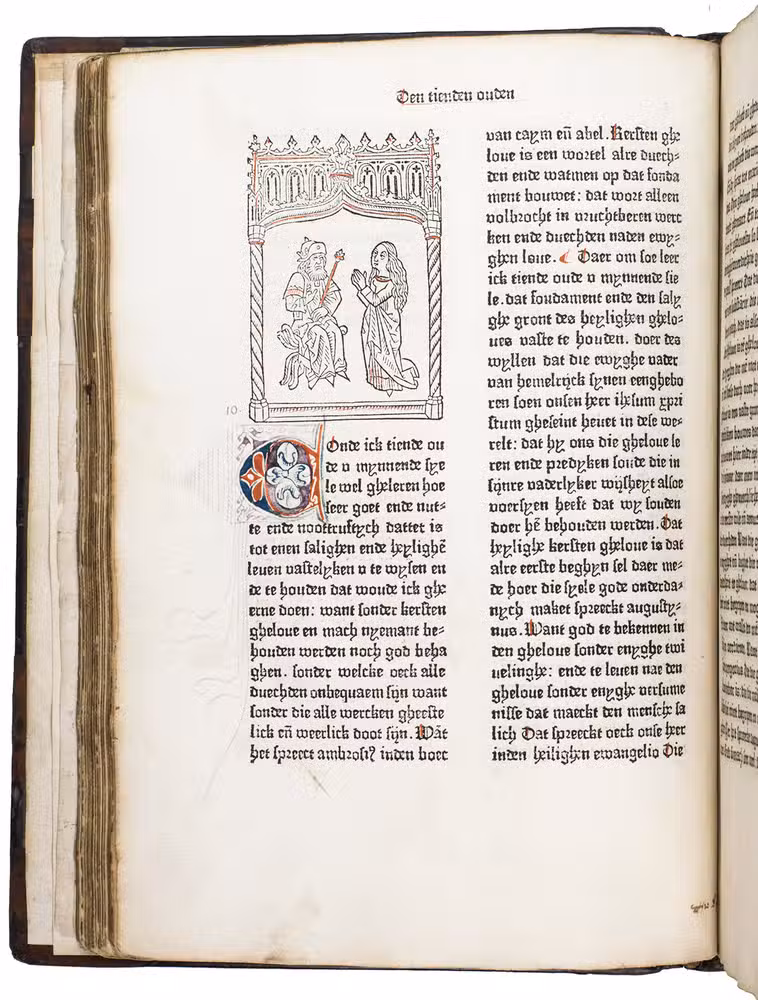 Den tienden ouden
10
Conde ick tiende ou
de v mynnende sye
le wel gheleren hoe
seer goet ende nut-
te ende nootruftych dattet is
tot enen salighen ende heylighē
leuen vastelyken v te wysen en
de te houden dat woude ick ghe
erne doen: want sonder kersten
gheloue en mach nyemant be-
houden werden noch god beha
ghen. sonder welcke oeck alle
duechden onbequaem sijn want
sonder die alle wercken gheeste
lick eñ weerlick doot sijn. Wāt
het spreect ambrosiꝰ inden boec
van caym eñ abel. Kersten ghe
loue is een wortel alre duech-
den ende watmen op dat fonda
ment bouwet: dat wort alleen
volbrocht in vruchtberen werc
ken ende duechden naden ewy-
ghen loue. Daer om soe leer
ick tiende oude v mynnende sie
le. dat foudament ende den saly
ghe gront des heylighen ghelo-
ues vaste te houden. doer des
wyllen dat die ewyghe vader
van hemelrijck synen eenghebo
ren soen onsen heer ihesum xpri
stum gheseint heuet in dese we-
relt: dat hy ons die gheloue le
ren ende predyken soude die in
sijnre vaderlyker wijsheyt alsoe
voersyen heeft dat wy souden
doer hē behouden werden. Dat
heylighe kersten gheloue is dat
alre eerste beghyn sel daer me-
de hoer die syele gode onderda-
nych maket spreeckt augusty-
nus. Want god te bekennen in
den gheloue sonder enyghe twi
uelinghe: ende te leuen nae den
gheloue sonder enyghe versume
nisse dat maeckt den mensche sa
lich Dat spreeckt oeck onse heer
inden heilighen ewangelio Die